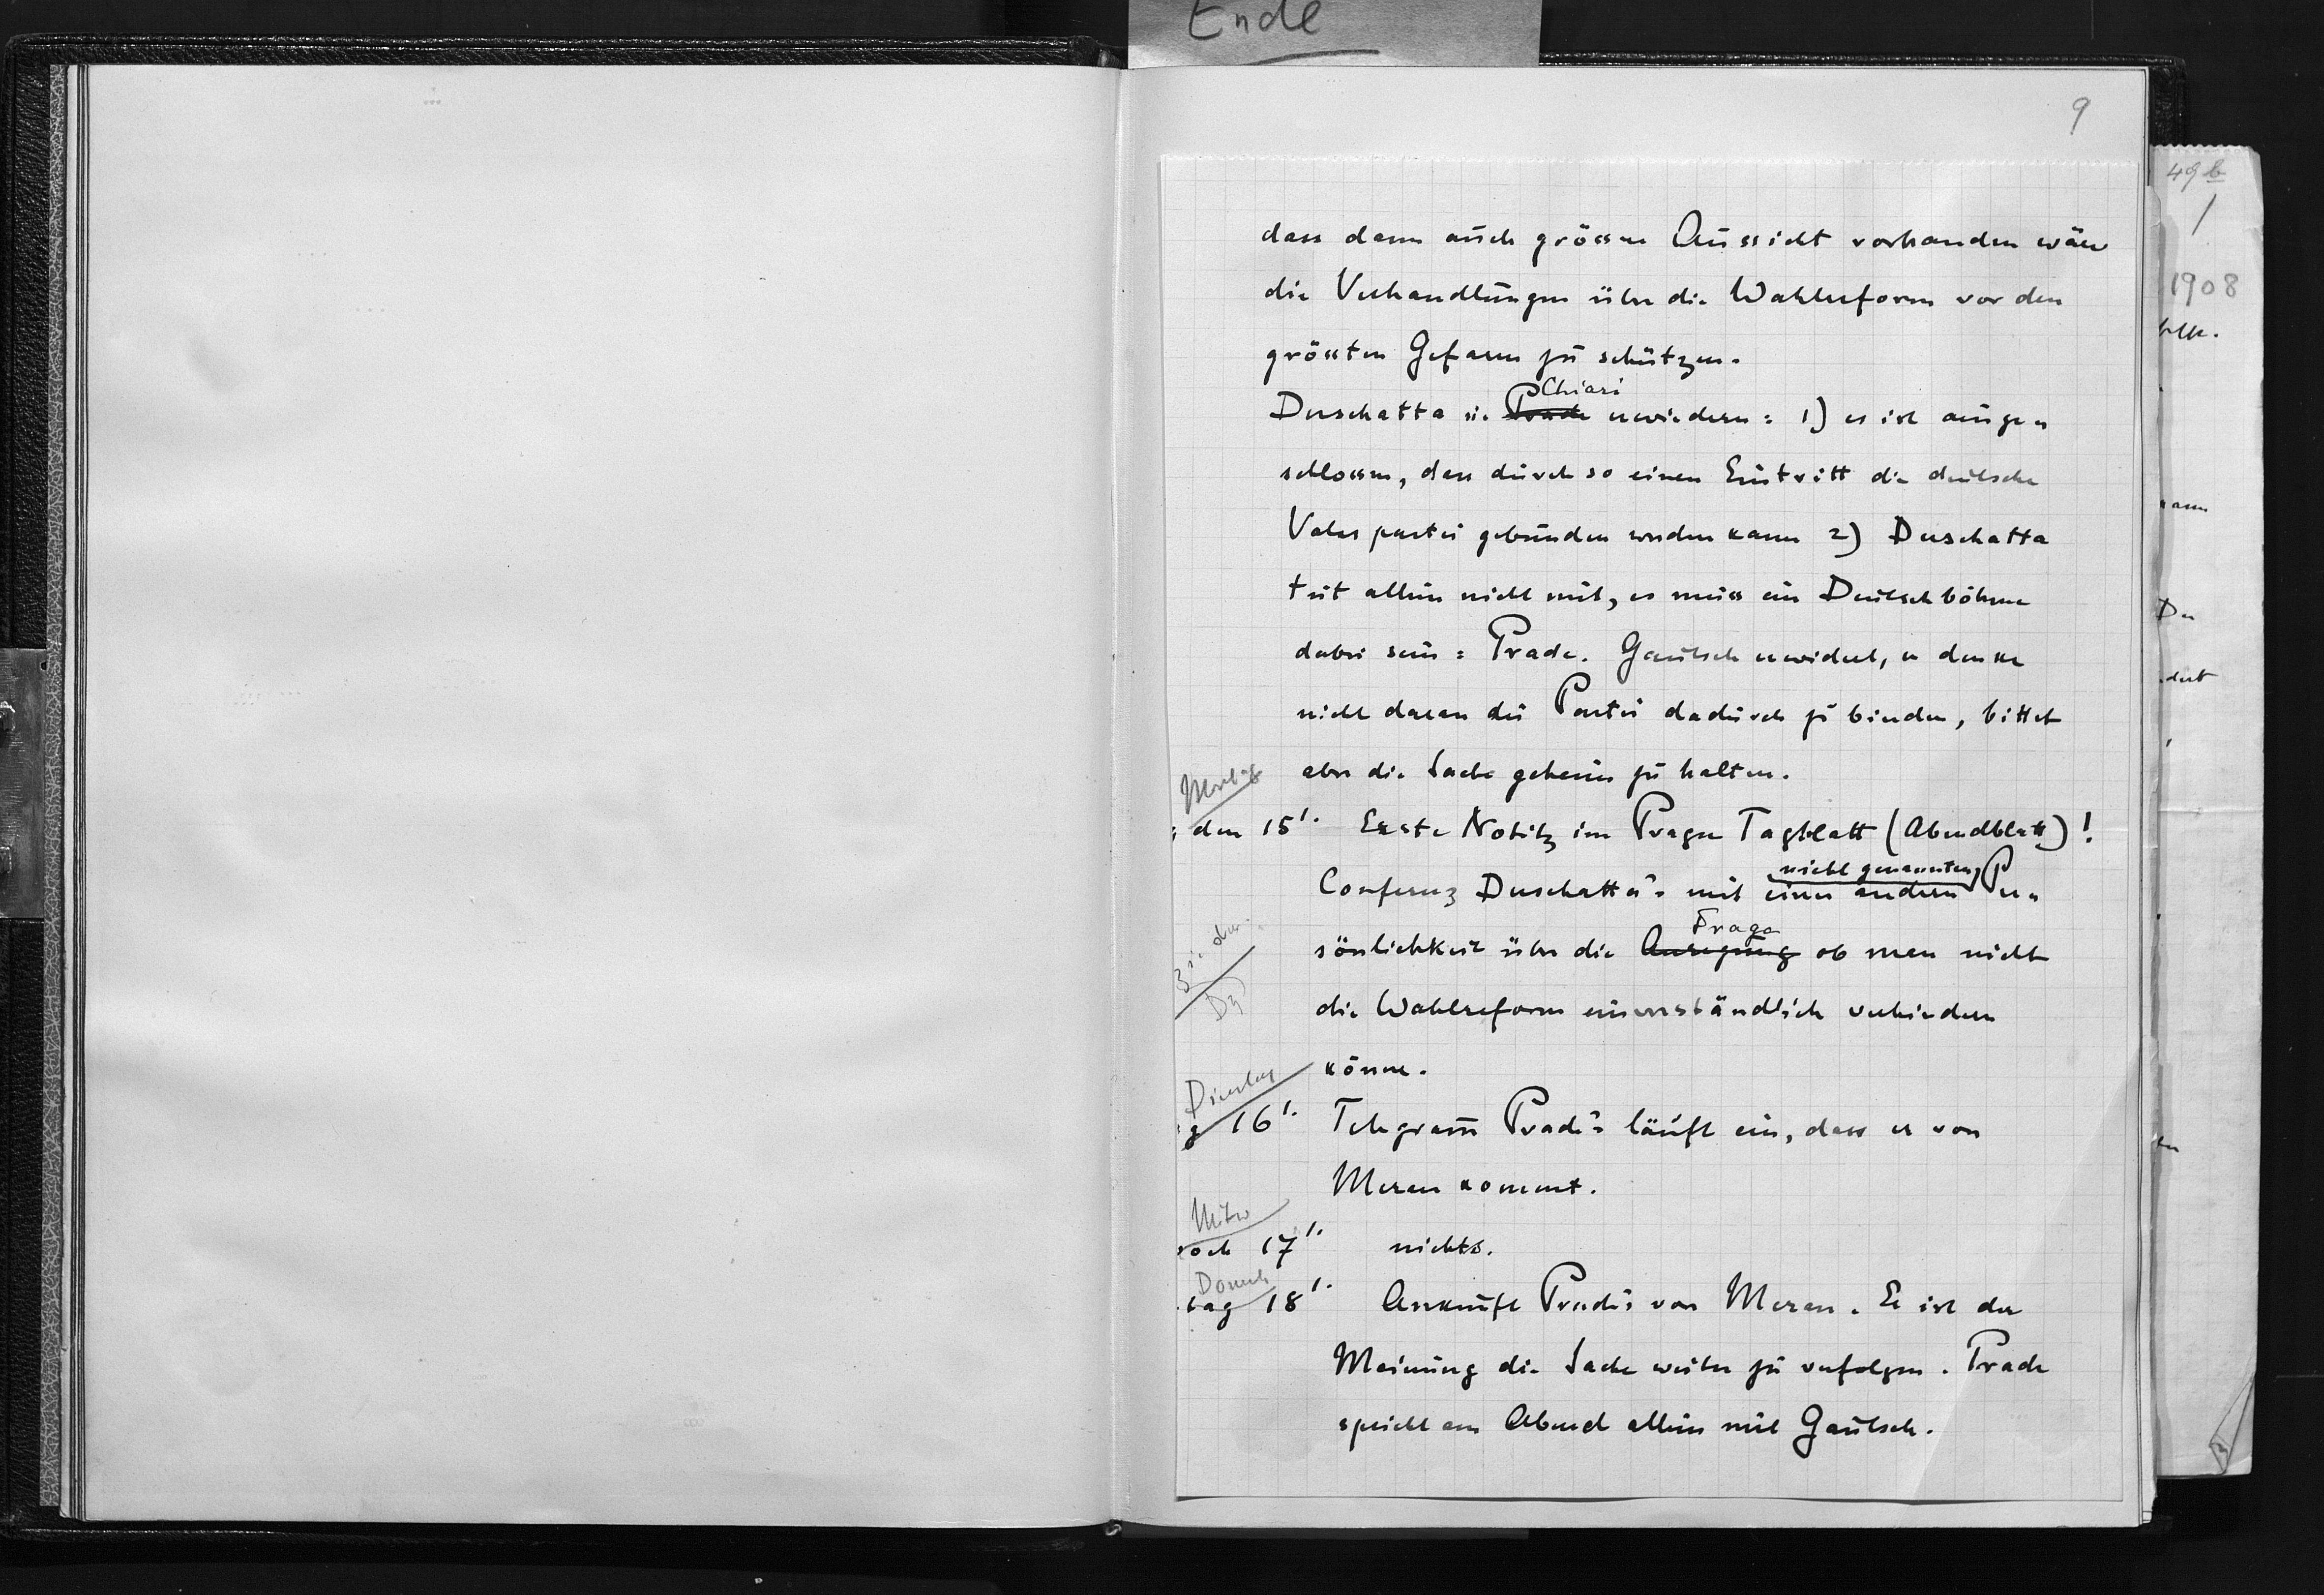 Ende
9
dass dann auch grössere Aussicht vorhanden wäre
die Verhandlungen über die Wahlreform vor den
grössten Gefaren zu schützen.
Chiari
Derschatta u. Prade erwiedern: 1) es ist ausge=
schlossen, dass durch so einen Eintritt die deutsche
Volkspartei gebunden werden kann 2) Derschatta
tut allein nicht mit, es muss ein Deutschböhme
dabei sein: Prade. Gautsch erwidert, er denke
nicht daran die Partei dadurch zu binden, bittet
aber die Sache geheim zu halten.
Montag
den 15/1. Erste Notitz im Prager Tagblatt (Abendblatt)!
nicht genannten
Conferenz Derschatta's mit einer andern Per=
Frage
sönlichkeit über die Anregung ob man nicht
die Wahlreform einverständlich verhindern
könne.
Dienstag
g 16/1. Telegram Prade's läuft ein, dass er von
Meran kommt.
Mitw
och 17/1. nichts.
Donners
tag 18/1. Ankunft Prade's von Meran. Er ist der
Meinung die Sache weiter zu verfolgen. Prade
spricht am Abend allein mit Gautsch.
49b
1
1908